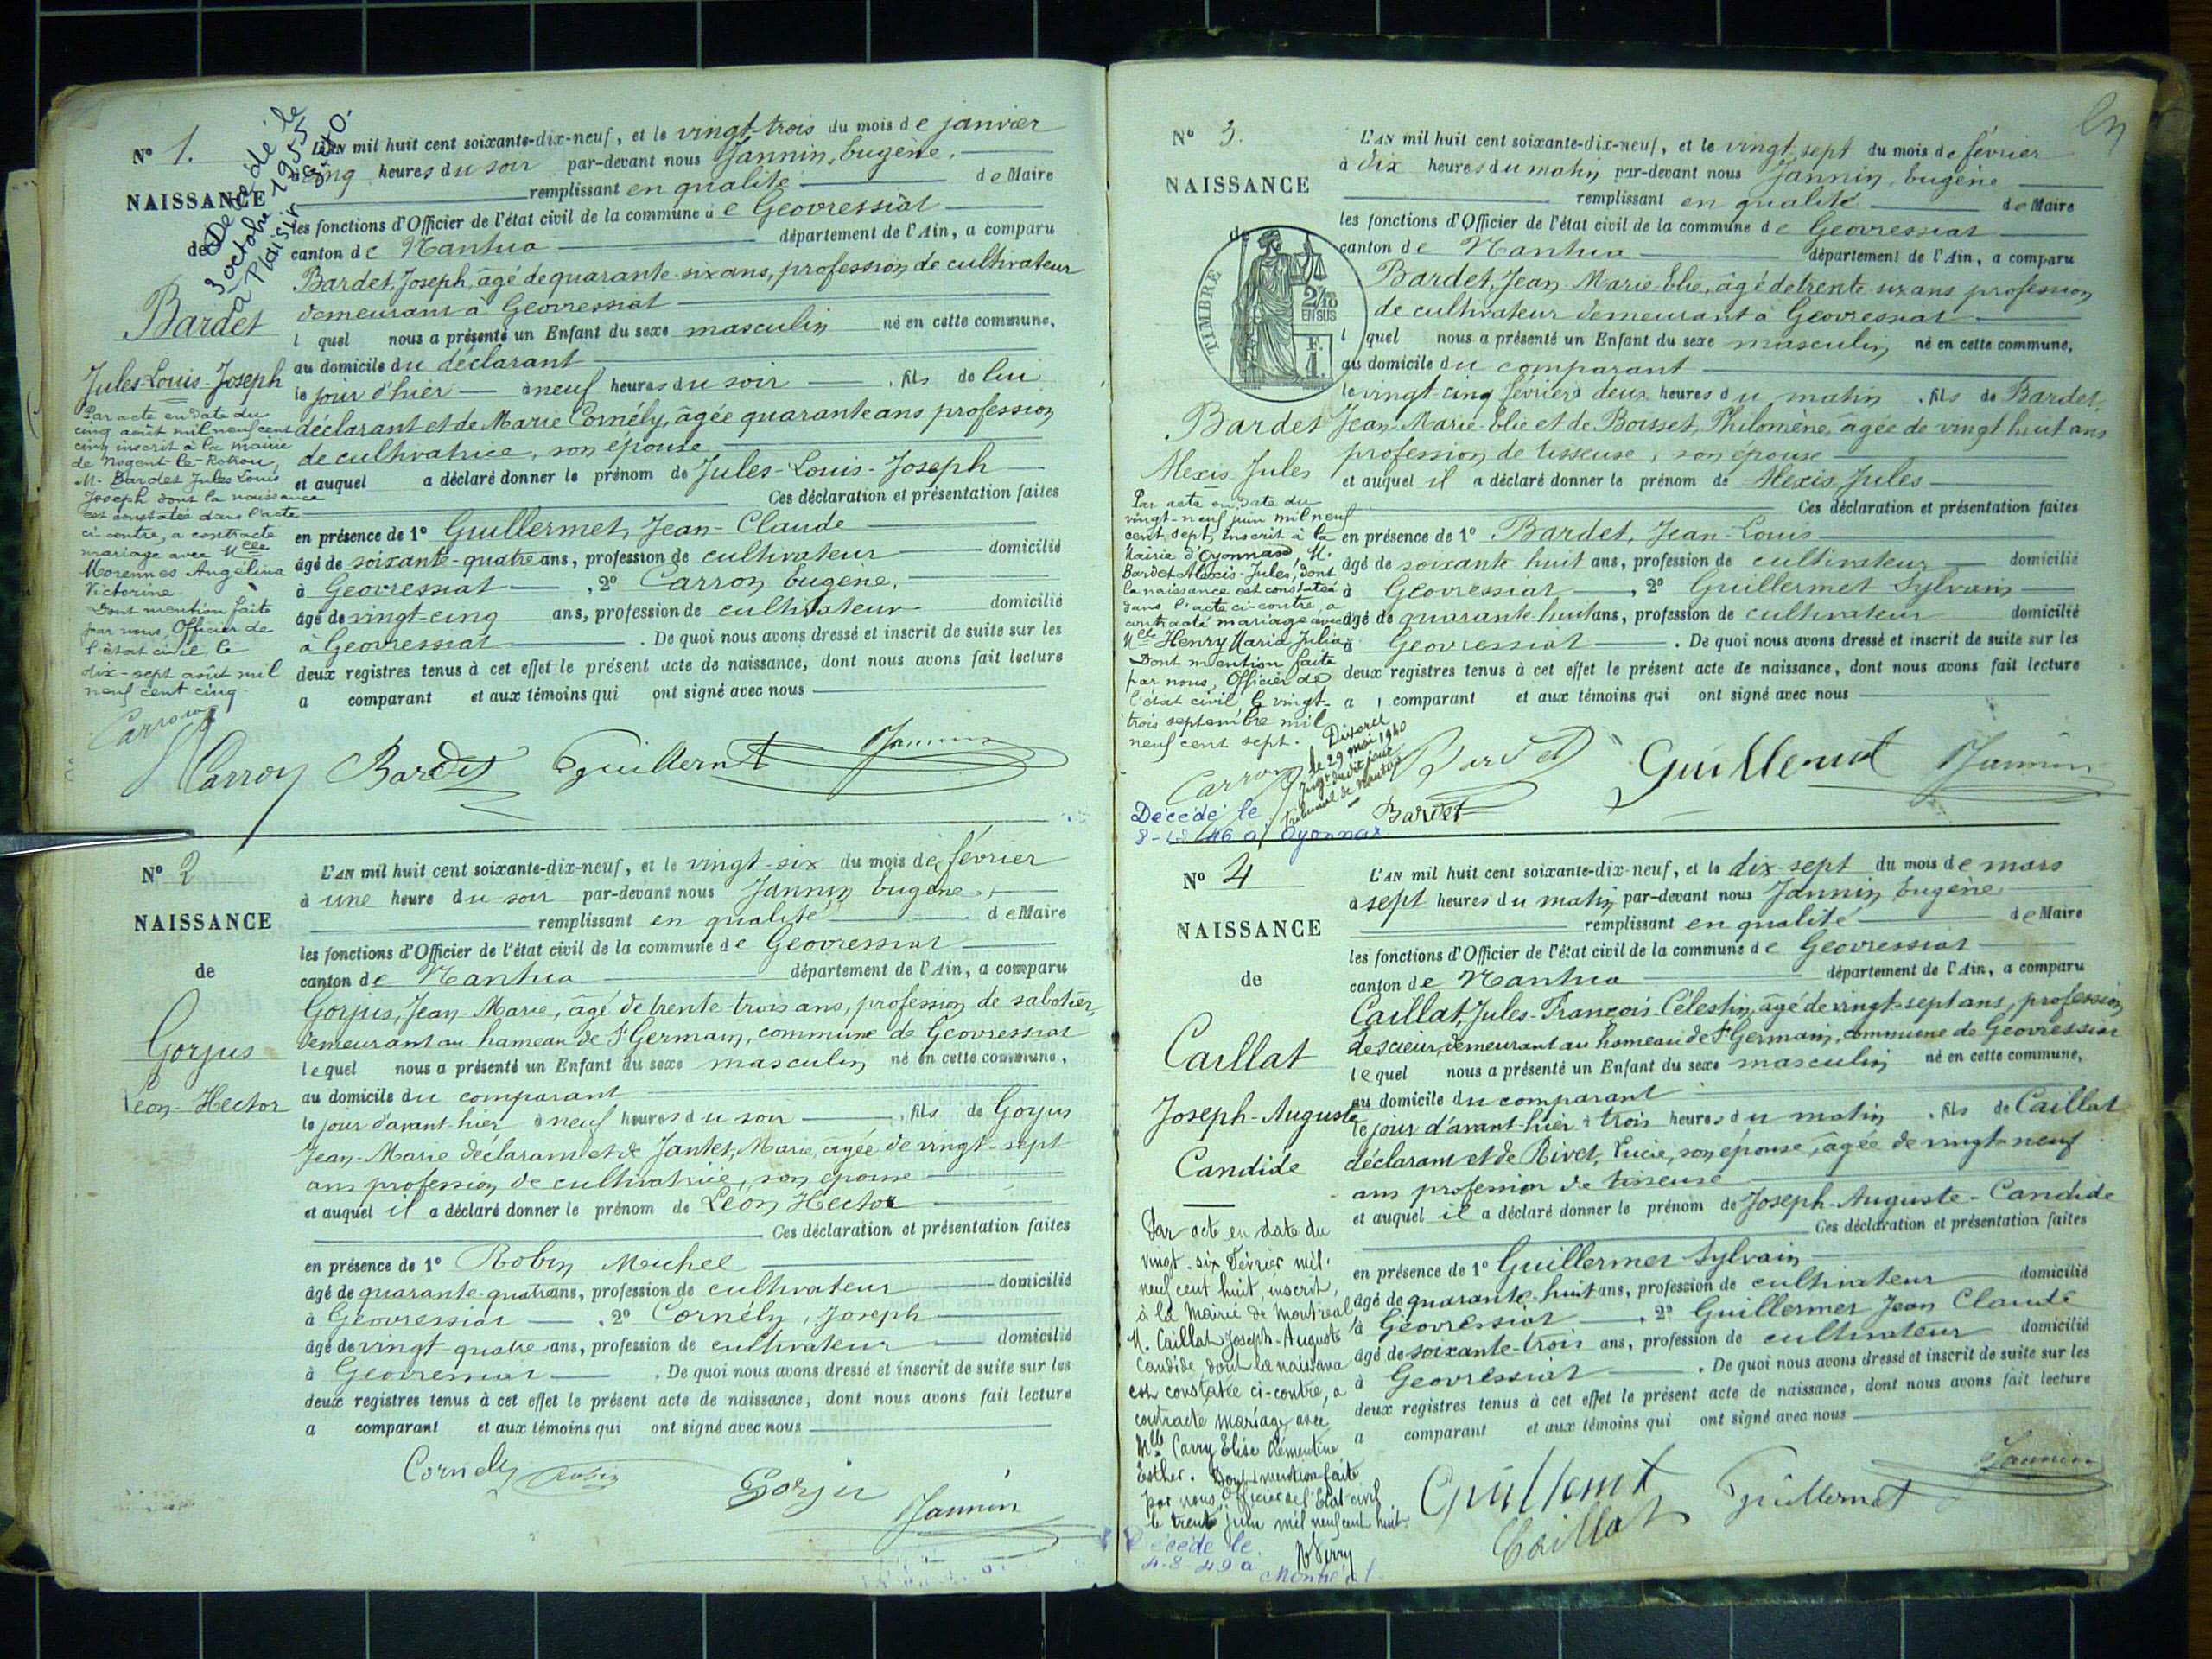 Nº 1.
NAISSANCE
de
Bardet
Jules-Louis-Joseph
Décédé le
3 octobre 1955
à Plaisir
Par acte en date du
cinq août mil neuf cent
cinq inscrit à la mairie
de Nogent-le-Rotrou,
M. Bardet Jules Louis
Joseph dont la naissance
est constatée dans l'acte
ci-contre, a contracté
mariage avec Melle
Morennes Angélina
Victorine.
Dont mention faite
par nous, Officier de
l'état civil, le
dix-sept août mil
neuf cent cinq.
Carron
L'AN mil huit cent soixante-dix-neuf, et le vingt-trois du mois de janvier
à cinq heures du soir par-devant nous Jannin, Eugène.
remplissant en qualité de Maire
les fonctions d'Officier de l'état civil de la commune de Geovressiat
canton de Nantua département de l'Ain, a comparu
Bardet, Joseph, âgé de quarante-six ans, profession de cultivateur
demeurant à Geovressiat
l quel nous a présenté un Enfant du sexe masculin né en cette commune,
au domicile du déclarant
le jour d'hier à neuf heures du soir, fils de lui
déclarant et de Marie Cornély, âgée quarante ans profession
de cultivatrice, son épouse
et auquel a déclaré donner le prénom de Jules-Louis-Joseph
Ces déclaration et présentation faites
en présence de 1º Guillermet, Jean-Claude
âgé de soixante-quatre ans, profession de cultivateur domicilié
à Geovressiat, 2º Carron Eugène,
âgé de vingt-cinq ans, profession de cultivateur domicilié
à Geovressiat. De quoi nous avons dressé et inscrit de suite sur les
deux registres tenus à cet effet le présent acte de naissance, dont nous avons fait lecture
a comparant et aux témoins qui ont signé avec nous
Carron Bardet Guillermet Jannin
Nº 2
NAISSANCE
de
Gorjus
Léon-Hector
L'AN mil huit cent soixante-dix-neuf, et le vingt-six du mois de février
à une heure du soir par-devant nous Jannin Eugène,
remplissant en qualité de Maire
les fonctions d'Officier de l'état civil de la commune de Geovressiat
canton de Nantua département de l'Ain, a comparu
Gorjus, Jean-Marie, âgé de trente-trois ans, profession de sabotier,
demeurant au hameau de St Germain, commune de Geovressiat
lequel nous a présenté un Enfant du sexe masculin né en cette commune,
au domicile du comparant
le jour d'avant-hier à neuf heures du soir, fils de Gorjus
Jean-Marie déclarant et de Jantet, Marie, âgée de vingt-sept
ans profession de cultivatrice, son épouse
et auquel il a déclaré donner le prénom de Léon Hector
Ces déclaration et présentation faites
en présence de 1º Robin Michel
âgé de quarante-quatre ans, profession de cultivateur domicilié
à Geovressiat, 2º Cornély, Joseph
âgé de vingt quatre ans, profession de cultivateur domicilié
à Geovressiat. De quoi nous avons dressé et inscrit de suite sur les
deux registres tenus à cet effet le présent acte de naissance, dont nous avons fait lecture
a comparant et aux témoins qui ont signé avec nous
Cornély Robin Gorjus Jannin
Nº 3.
NAISSANCE
de
TIMBRE
2/10
EN SUS
Bardet
Alexis Jules
Par acte en date du
vingt-neuf juin mil neuf
cent sept, inscrit à la
Mairie d'Oyonnax, M.
Bardet Alexis-Jules, dont
la naissance est constatée
dans l'acte ci-contre, a
contracté mariage avec
Melle Henry Maria Julia
Dont mention faite
par nous, Officier de
l'état civil le vingt-
trois septembre mil
neuf cent sept.
Carron
Divorcé
le 29 mai 1940
Jugt du dit jour
tribunal de Nantua
Décédé le
8-12 46 à Oyonnax
L'AN mil huit cent soixante-dix-neuf, et le vingt sept du mois de février
à dix heures du matin par-devant nous Jannin, Eugène
remplissant en qualité de Maire
les fonctions d'Officier de l'état civil de la commune de Geovressiat
canton de Nantua département de l'Ain, a comparu
Bardet, Jean-Marie-Elie, âgé de trente-six ans profession
de cultivateur demeurant à Geovressiat
l quel nous a présenté un Enfant du sexe masculin né en cette commune,
au domicile du comparant
le vingt-cinq février à deux heures du matin, fils de Bardet,
Jean-Marie-Elie et de Boisset, Philomène, âgée de vingt huit ans
profession de tisseuse, son épouse
et auquel il a déclaré donner le prénom de Alexis Jules
Ces déclaration et présentation faites
en présence de 1º Bardet, Jean-Louis
âgé de soixante huit ans, profession de cultivateur domicilié
à Geovressiat, 2º Guillermet Sylvain
âgé de quarante-huit ans, profession de cultivateur domicilié
à Geovressiat. De quoi nous avons dressé et inscrit de suite sur les
deux registres tenus à cet effet le présent acte de naissance, dont nous avons fait lecture
a comparant et aux témoins qui ont signé avec nous
Bardet Guillermet Jannin
Bardet
Nº 4
NAISSANCE
de
Caillat
Joseph-Auguste
Candide
Par acte en date du
vingt-six Février mil
neuf cent huit, inscrit,
à la Mairie de Montréal
M. Caillat Joseph-Auguste
Candide, dont la naissance
est constatée ci-contre, a
contracté mariage avec
Mlle Carry Elise Clémentine
Esther. Dont mention faite
par nous Officier de l'Etat-civil
le trente juin mil neuf cent huit.
Décédé le
4-8-49 à Montréal
L'AN mil huit cent soixante-dix-neuf, et le dix-sept du mois de mars
à sept heures du matin par-devant nous Jannin, Eugène
remplissant en qualité de Maire
les fonctions d'Officier de l'état civil de la commune de Geovressiat
canton de Nantua département de l'Ain, a comparu
Caillat, Jules-François Célestin, âgé de vingt-sept ans, profession
de scieur, demeurant au hameau de St Germain, commune de Geovressiat
lequel nous a présenté un Enfant du sexe masculin né en cette commune,
au domicile du comparant
le jour d'avant-hier à trois heures du matin, fils de Caillat
déclarant et de Rivet, Lucie, son épouse, âgée de vingt-neuf
ans profession de tisseuse
et auquel il a déclaré donner le prénom de Joseph-Auguste-Candide
Ces déclaration et présentation faites
en présence de 1º Guillermet Sylvain
âgé de quarante-huit ans, profession de cultivateur domicilié
à Geovressiat, 2º Guillermet Jean Claude
âgé de soixante-trois ans, profession de cultivateur domicilié
à Geovressiat. De quoi nous avons dressé et inscrit de suite sur les
deux registres tenus à cet effet le présent acte de naissance, dont nous avons fait lecture
a comparant et aux témoins qui ont signé avec nous
Guillermet Guillermet Jannin
Caillat